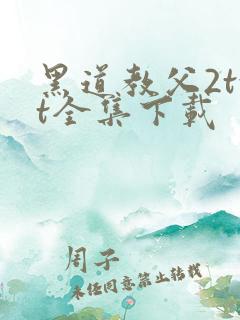 黑道教父2tx
t全集下载
周子
未经同意禁止转载